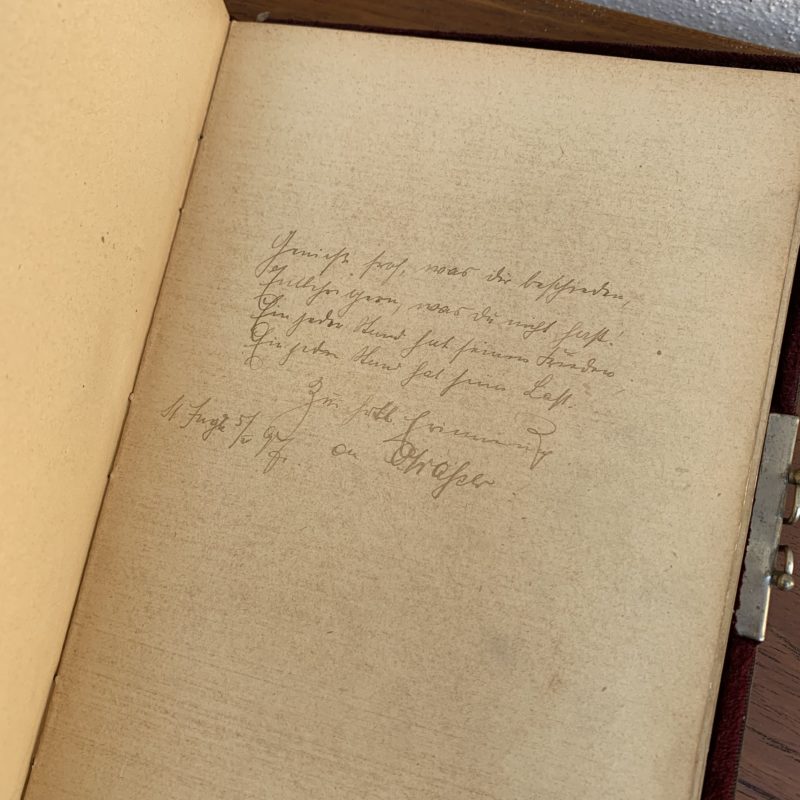 Genieße froh, was dir beschieden,
Entbehre gern, was du nicht hast!
Ein jeder Stand hat seinen Frieden,
Ein jeder Stand hat seine Last.
Zur Erinnerung
5/ 97. an